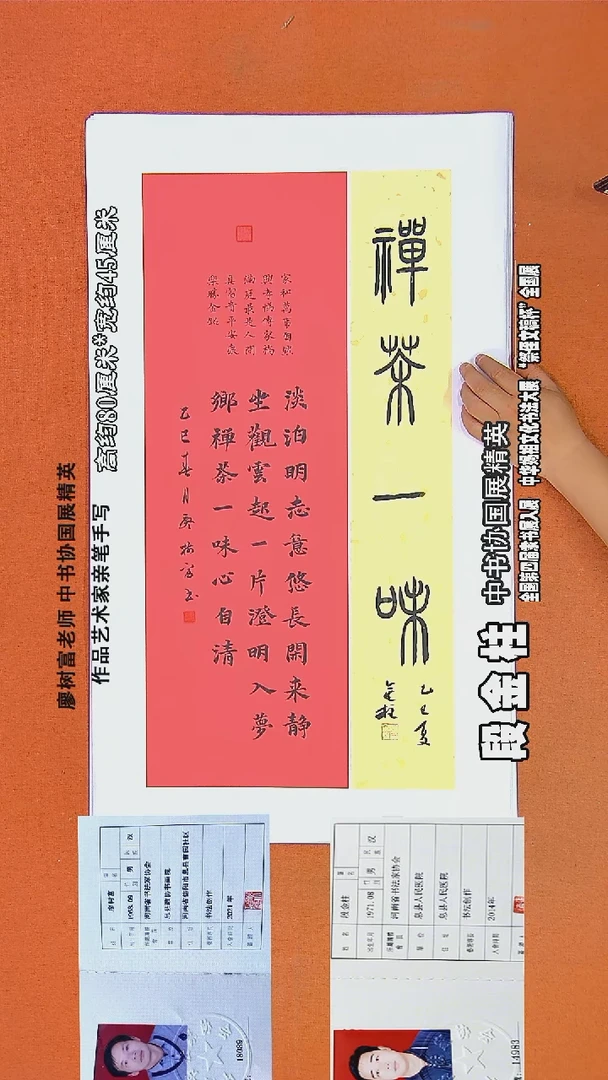 高约80厘米*宽约45厘米
廖树富老师 中书协国展精英
作品艺术家亲笔手写
禪茶一味
乙巳夏
金柱
淡泊明志意悠長閑来静
坐觀雲起一片澄明入夢
鄉禪茶一味心自清
乙巳春月廖树富书
段金柱
中书协国展精英
全国第四届隶书展入展 中华妈祖文化书法大展 “祭侄文稿杯”全国展
廖树富
男 汉
河南省书法家协会
书法创作
2021年
18089
段金柱
1971.08 男 汉
河南省书法家协会
息县人民医院
息县人民医院
书法创作
2014年
14983